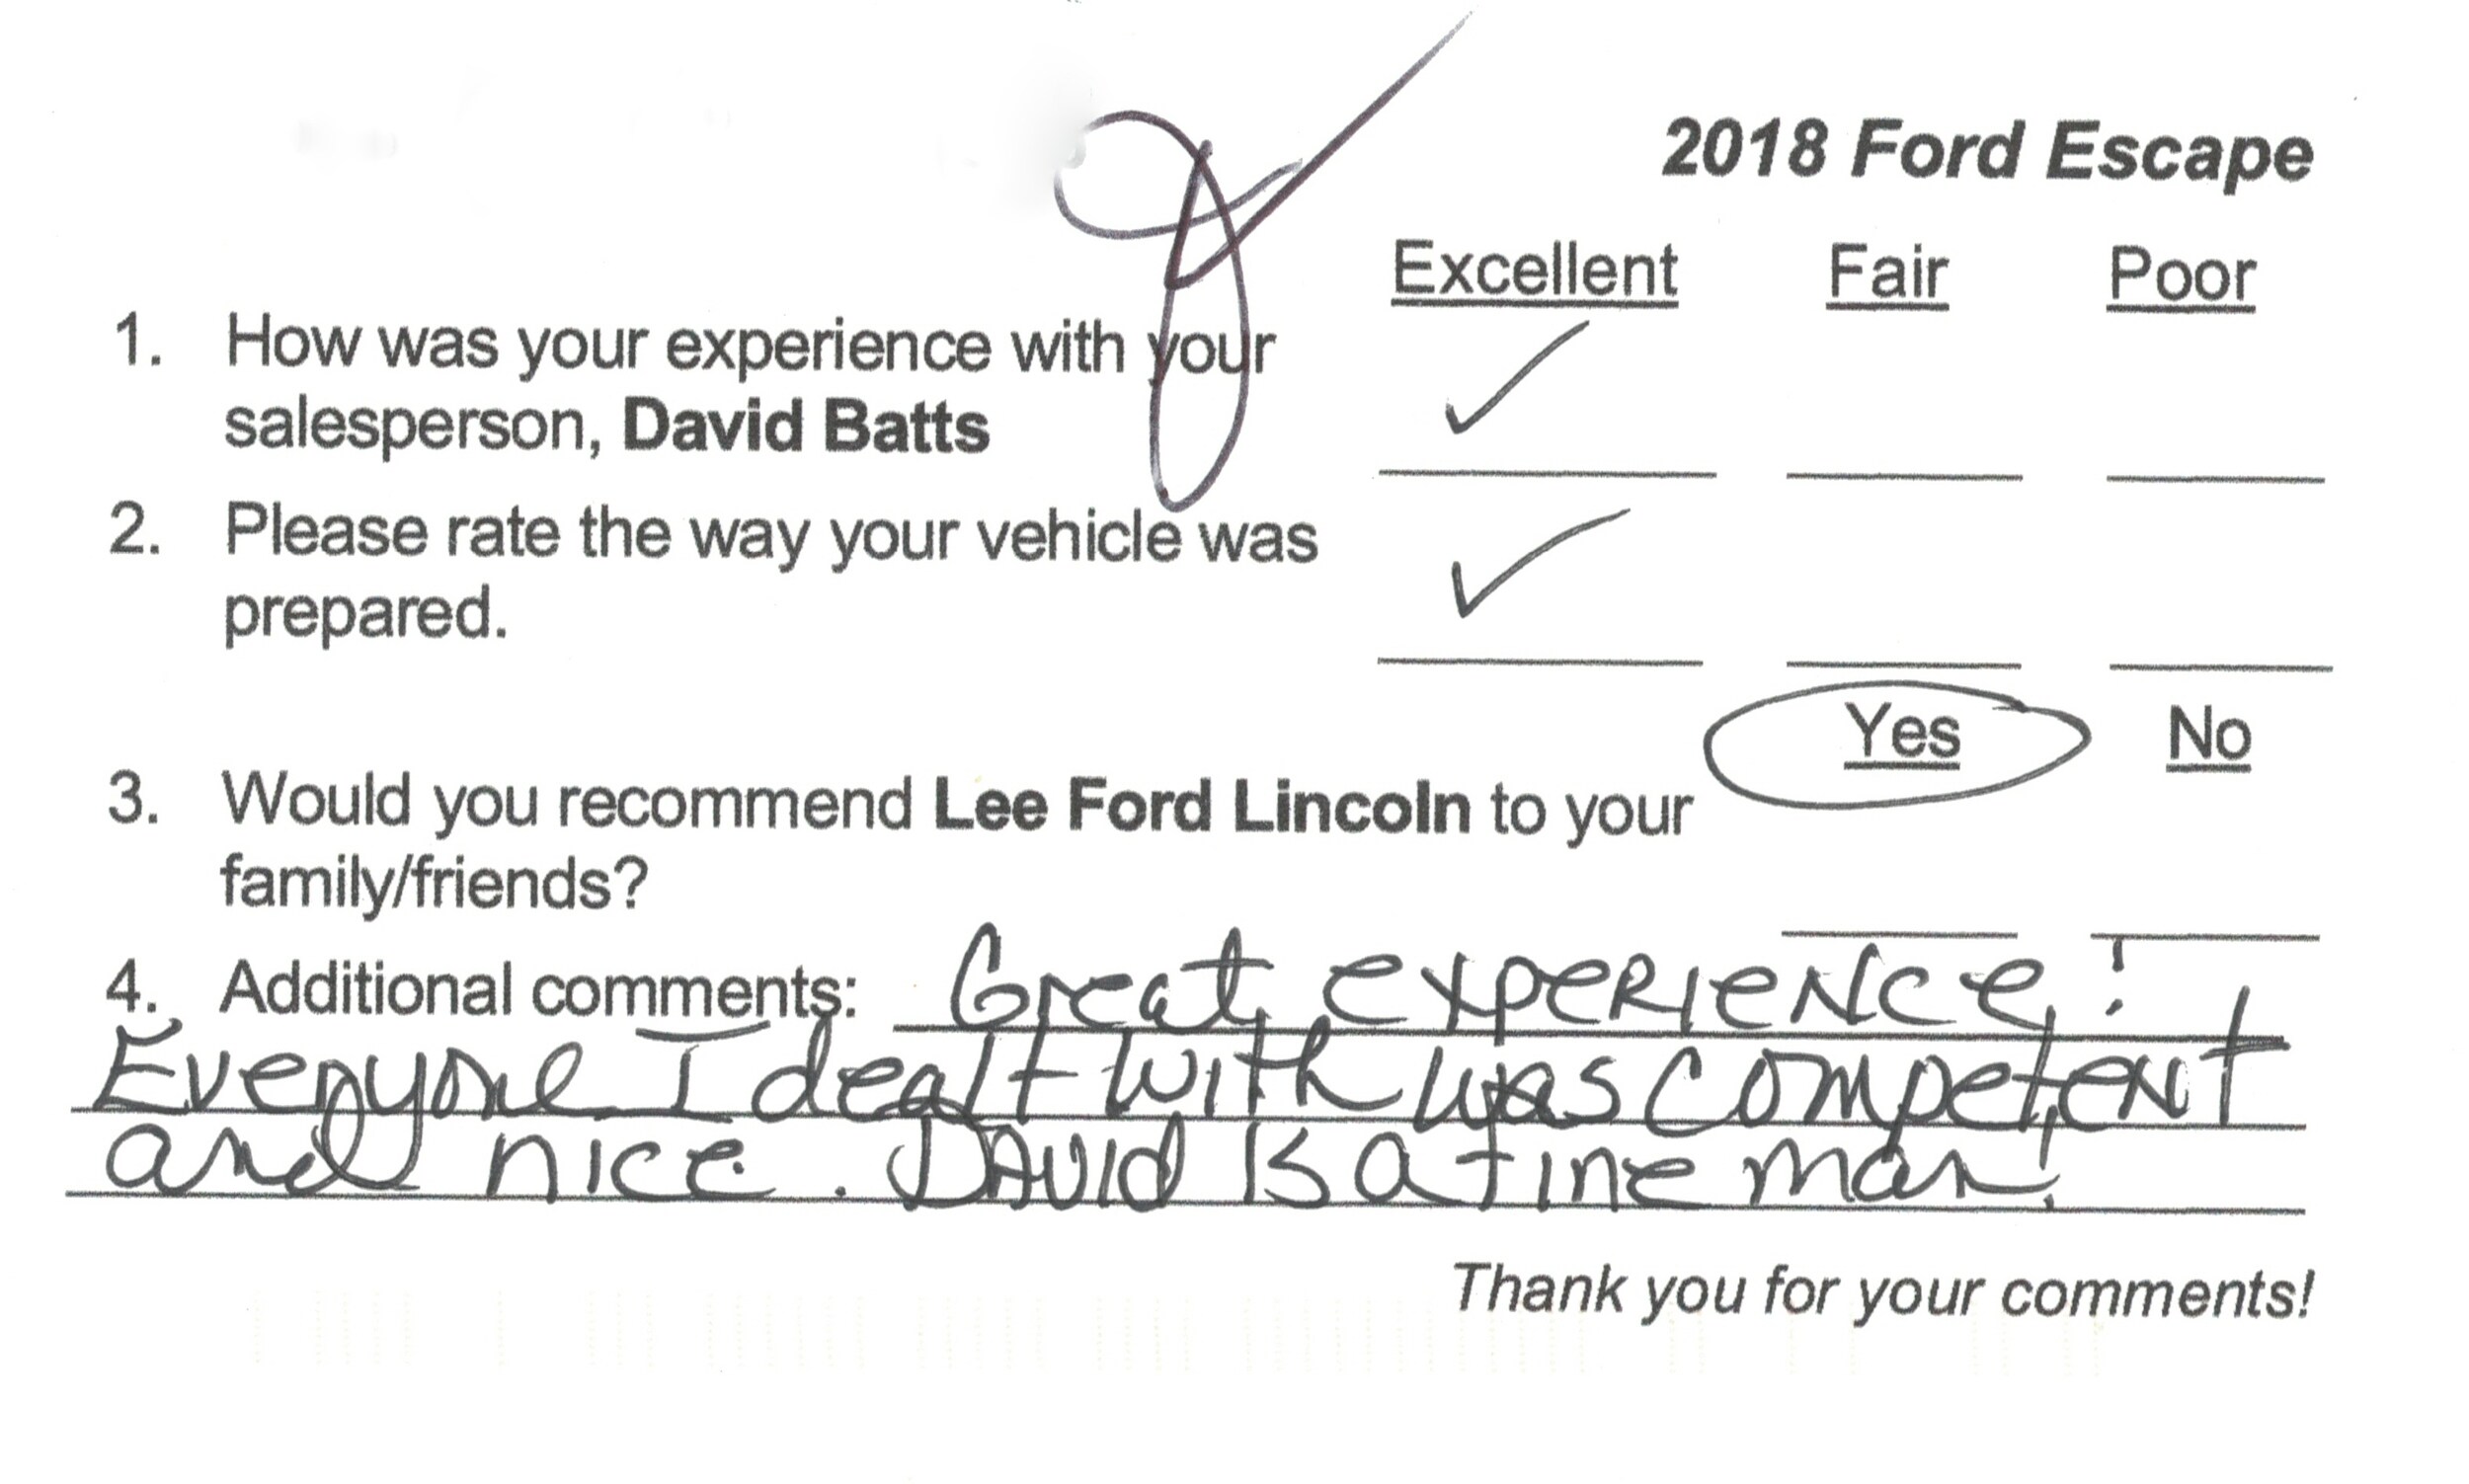 2018 Ford Escape
Excellent Fair Poor
1. How was your experience with your
salesperson, David Batts
2. Please rate the way your vehicle was
prepared.
Yes No
3. Would you recommend Lee Ford Lincoln to your
family/friends?
4. Additional comments: Great experience!
Everyone I dealt with was competent
and nice. David is a fine man!
Thank you for your comments!